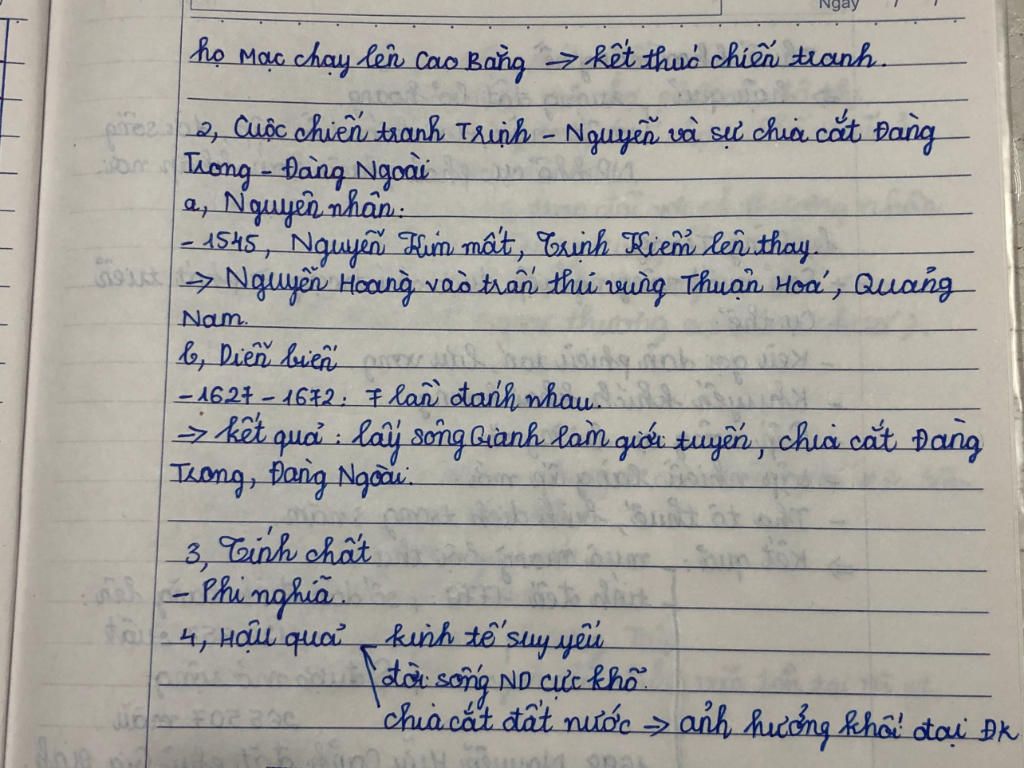 Ngày / /
họ Mạc chạy lên Cao Bằng → kết thúc chiến tranh.
2, Cuộc chiến tranh Trịnh - Nguyễn và sự chia cắt Đàng
Trong - Đàng Ngoài
a, Nguyên nhân:
- 1545, Nguyễn Kim mất, Trịnh Kiểm lên thay.
⇒ Nguyễn Hoàng vào trấn thủ vùng Thuận Hoá, Quảng
Nam.
b, Diễn biến
- 1627 - 1672: 7 lần đánh nhau.
⇒ kết quả: lấy sông Gianh làm giới tuyến, chia cắt Đàng
Trong, Đàng Ngoài.
3, Tính chất
- Phi nghĩa
4, Hậu quả - kinh tế suy yếu
đời sống ND cực khổ.
chia cắt đất nước ⇒ ảnh hưởng khối đại ĐK